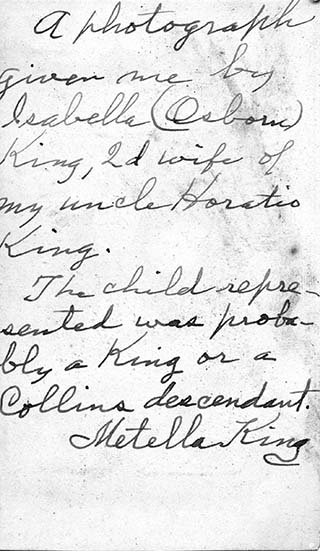 A photograph
given me by
Isabella (Osborn)
King, 2d wife of
my uncle Horatio
King.
The child repre-
sented was proba-
bly a King or a
Collins descendant.
Metella King